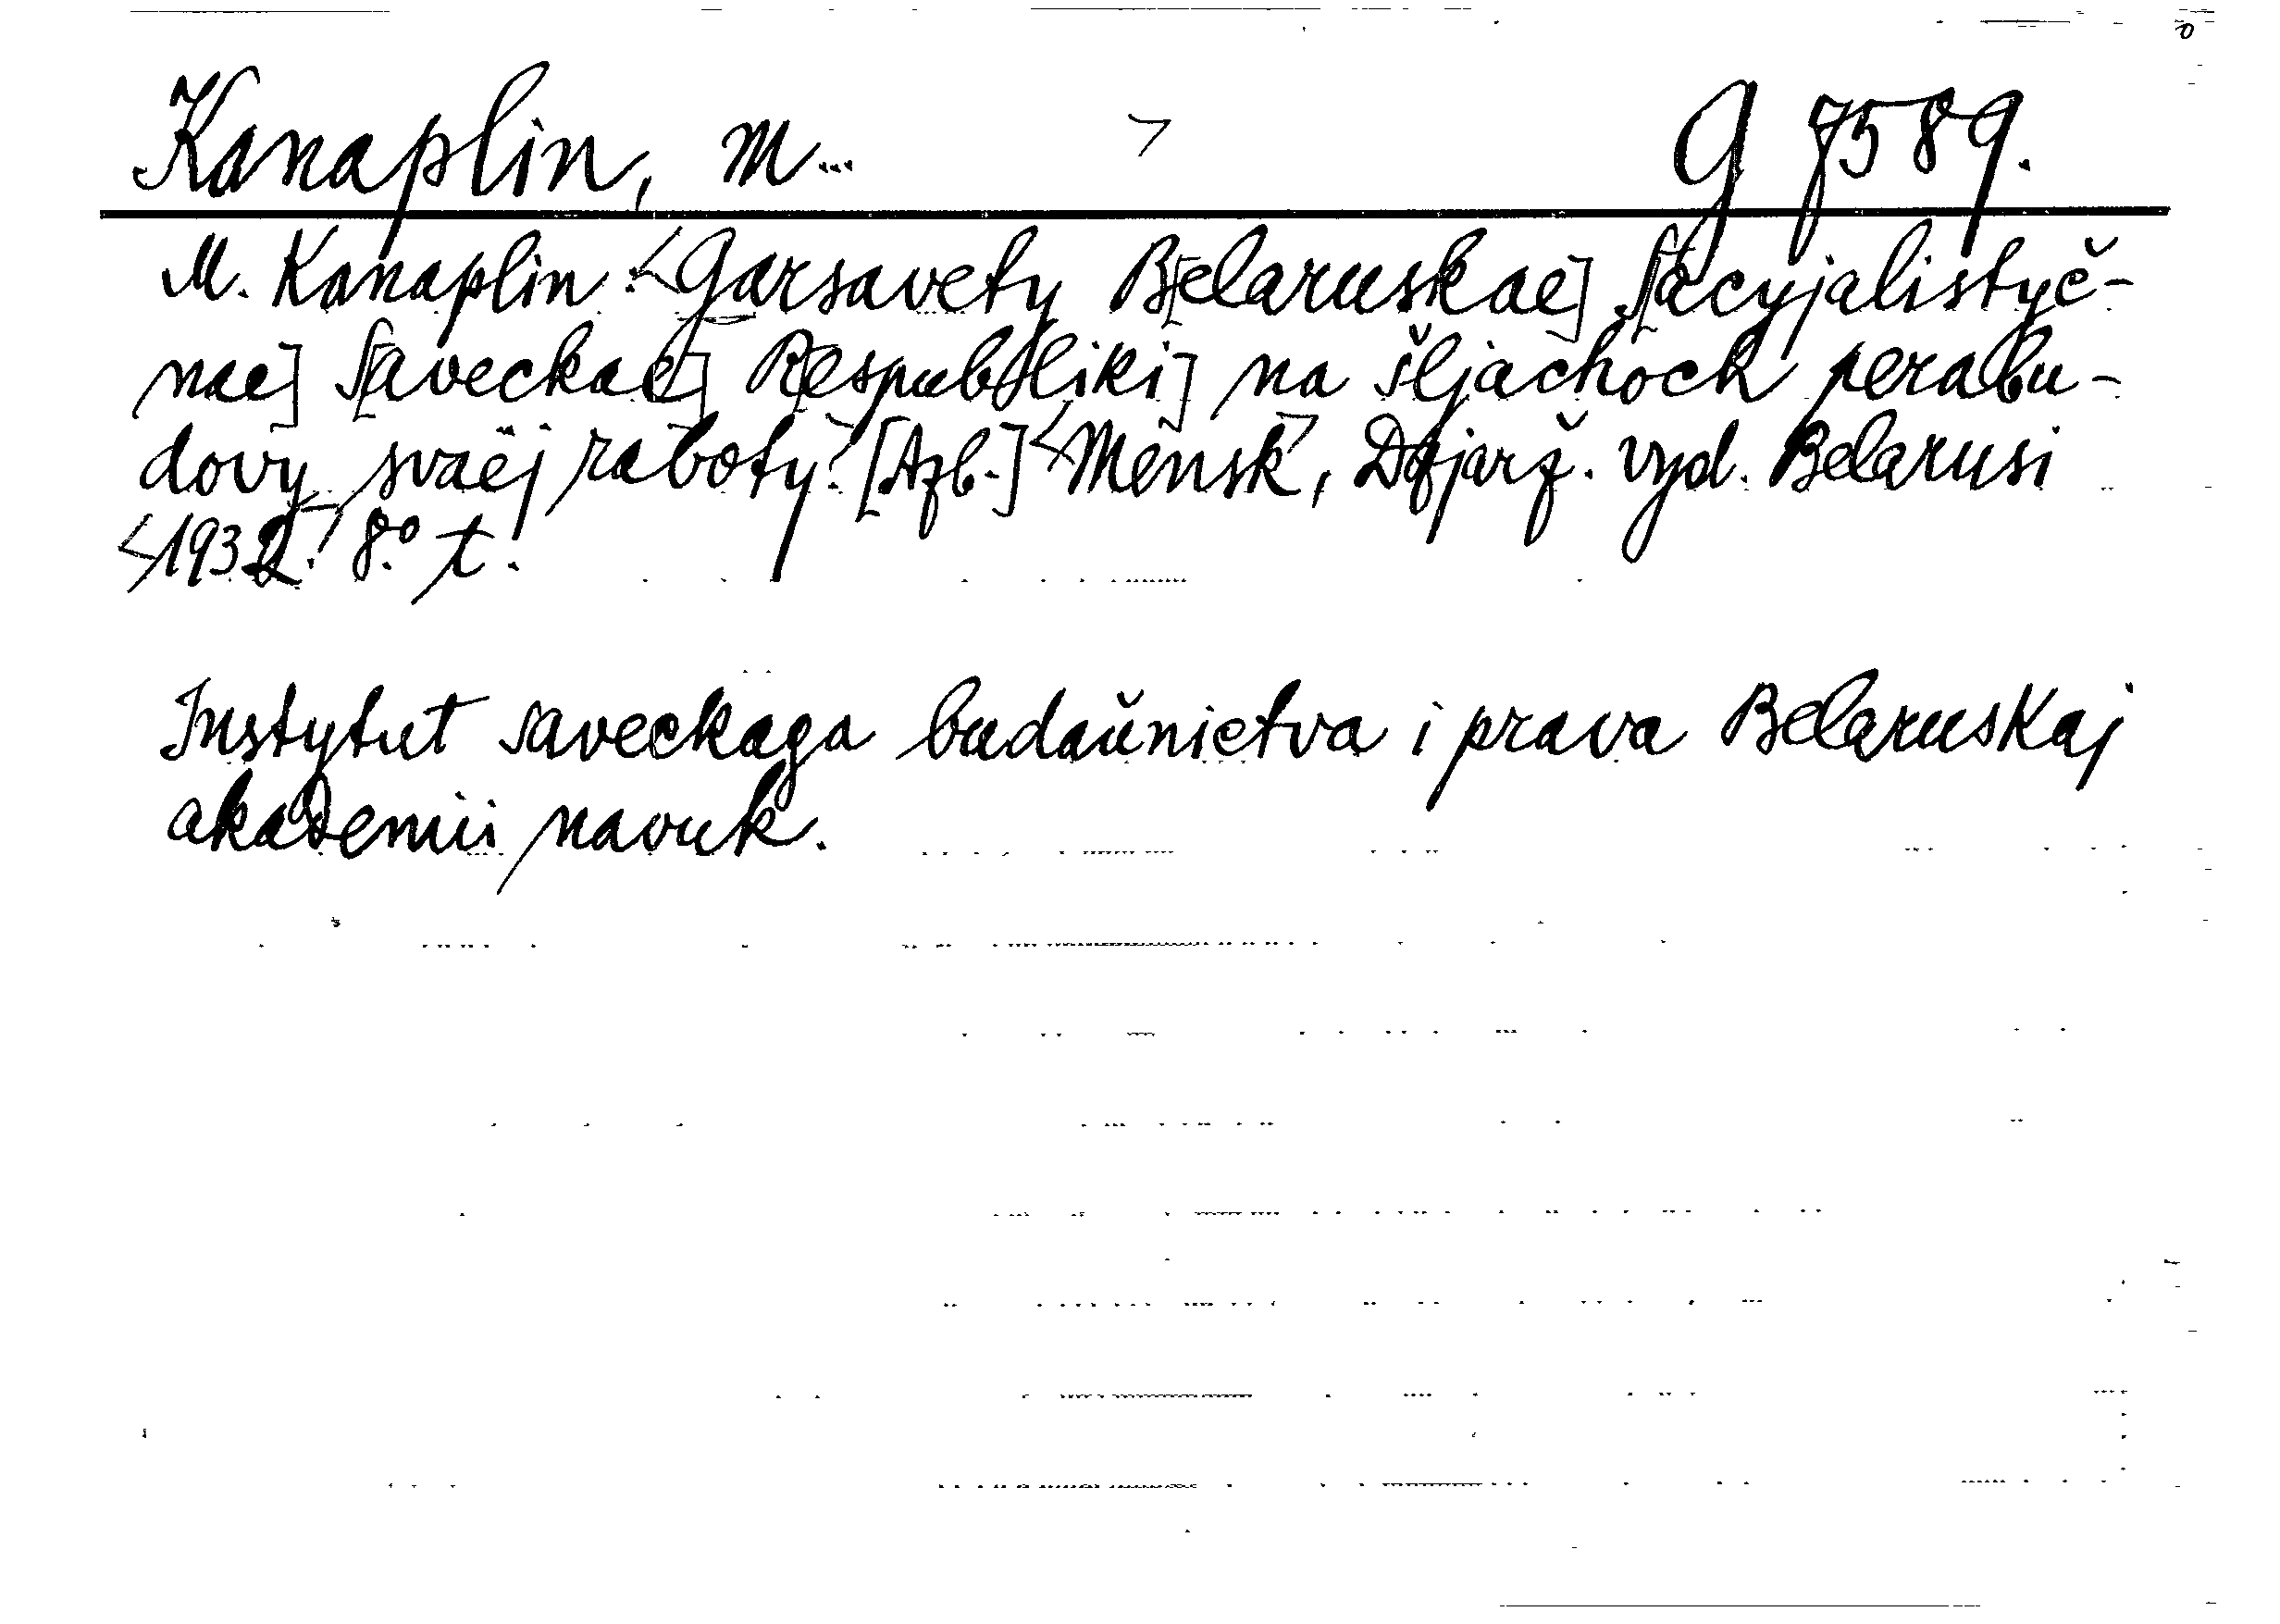 Kanaplin, M... G 7589.
M. Kanaplin: <Garsavety B[elaruskae] S[acyjalistyč-
nae] S[aveckae] R[espubliki] na šljachoch perabu-
dovy svaëj raboty. [Azb.] <Mensk>, Dzjarž. vyd. Belarusi
<1932.> 8.° t.
Instytut saveckaga budaŭnictva i prava Belaruskaj
akademii navuk.